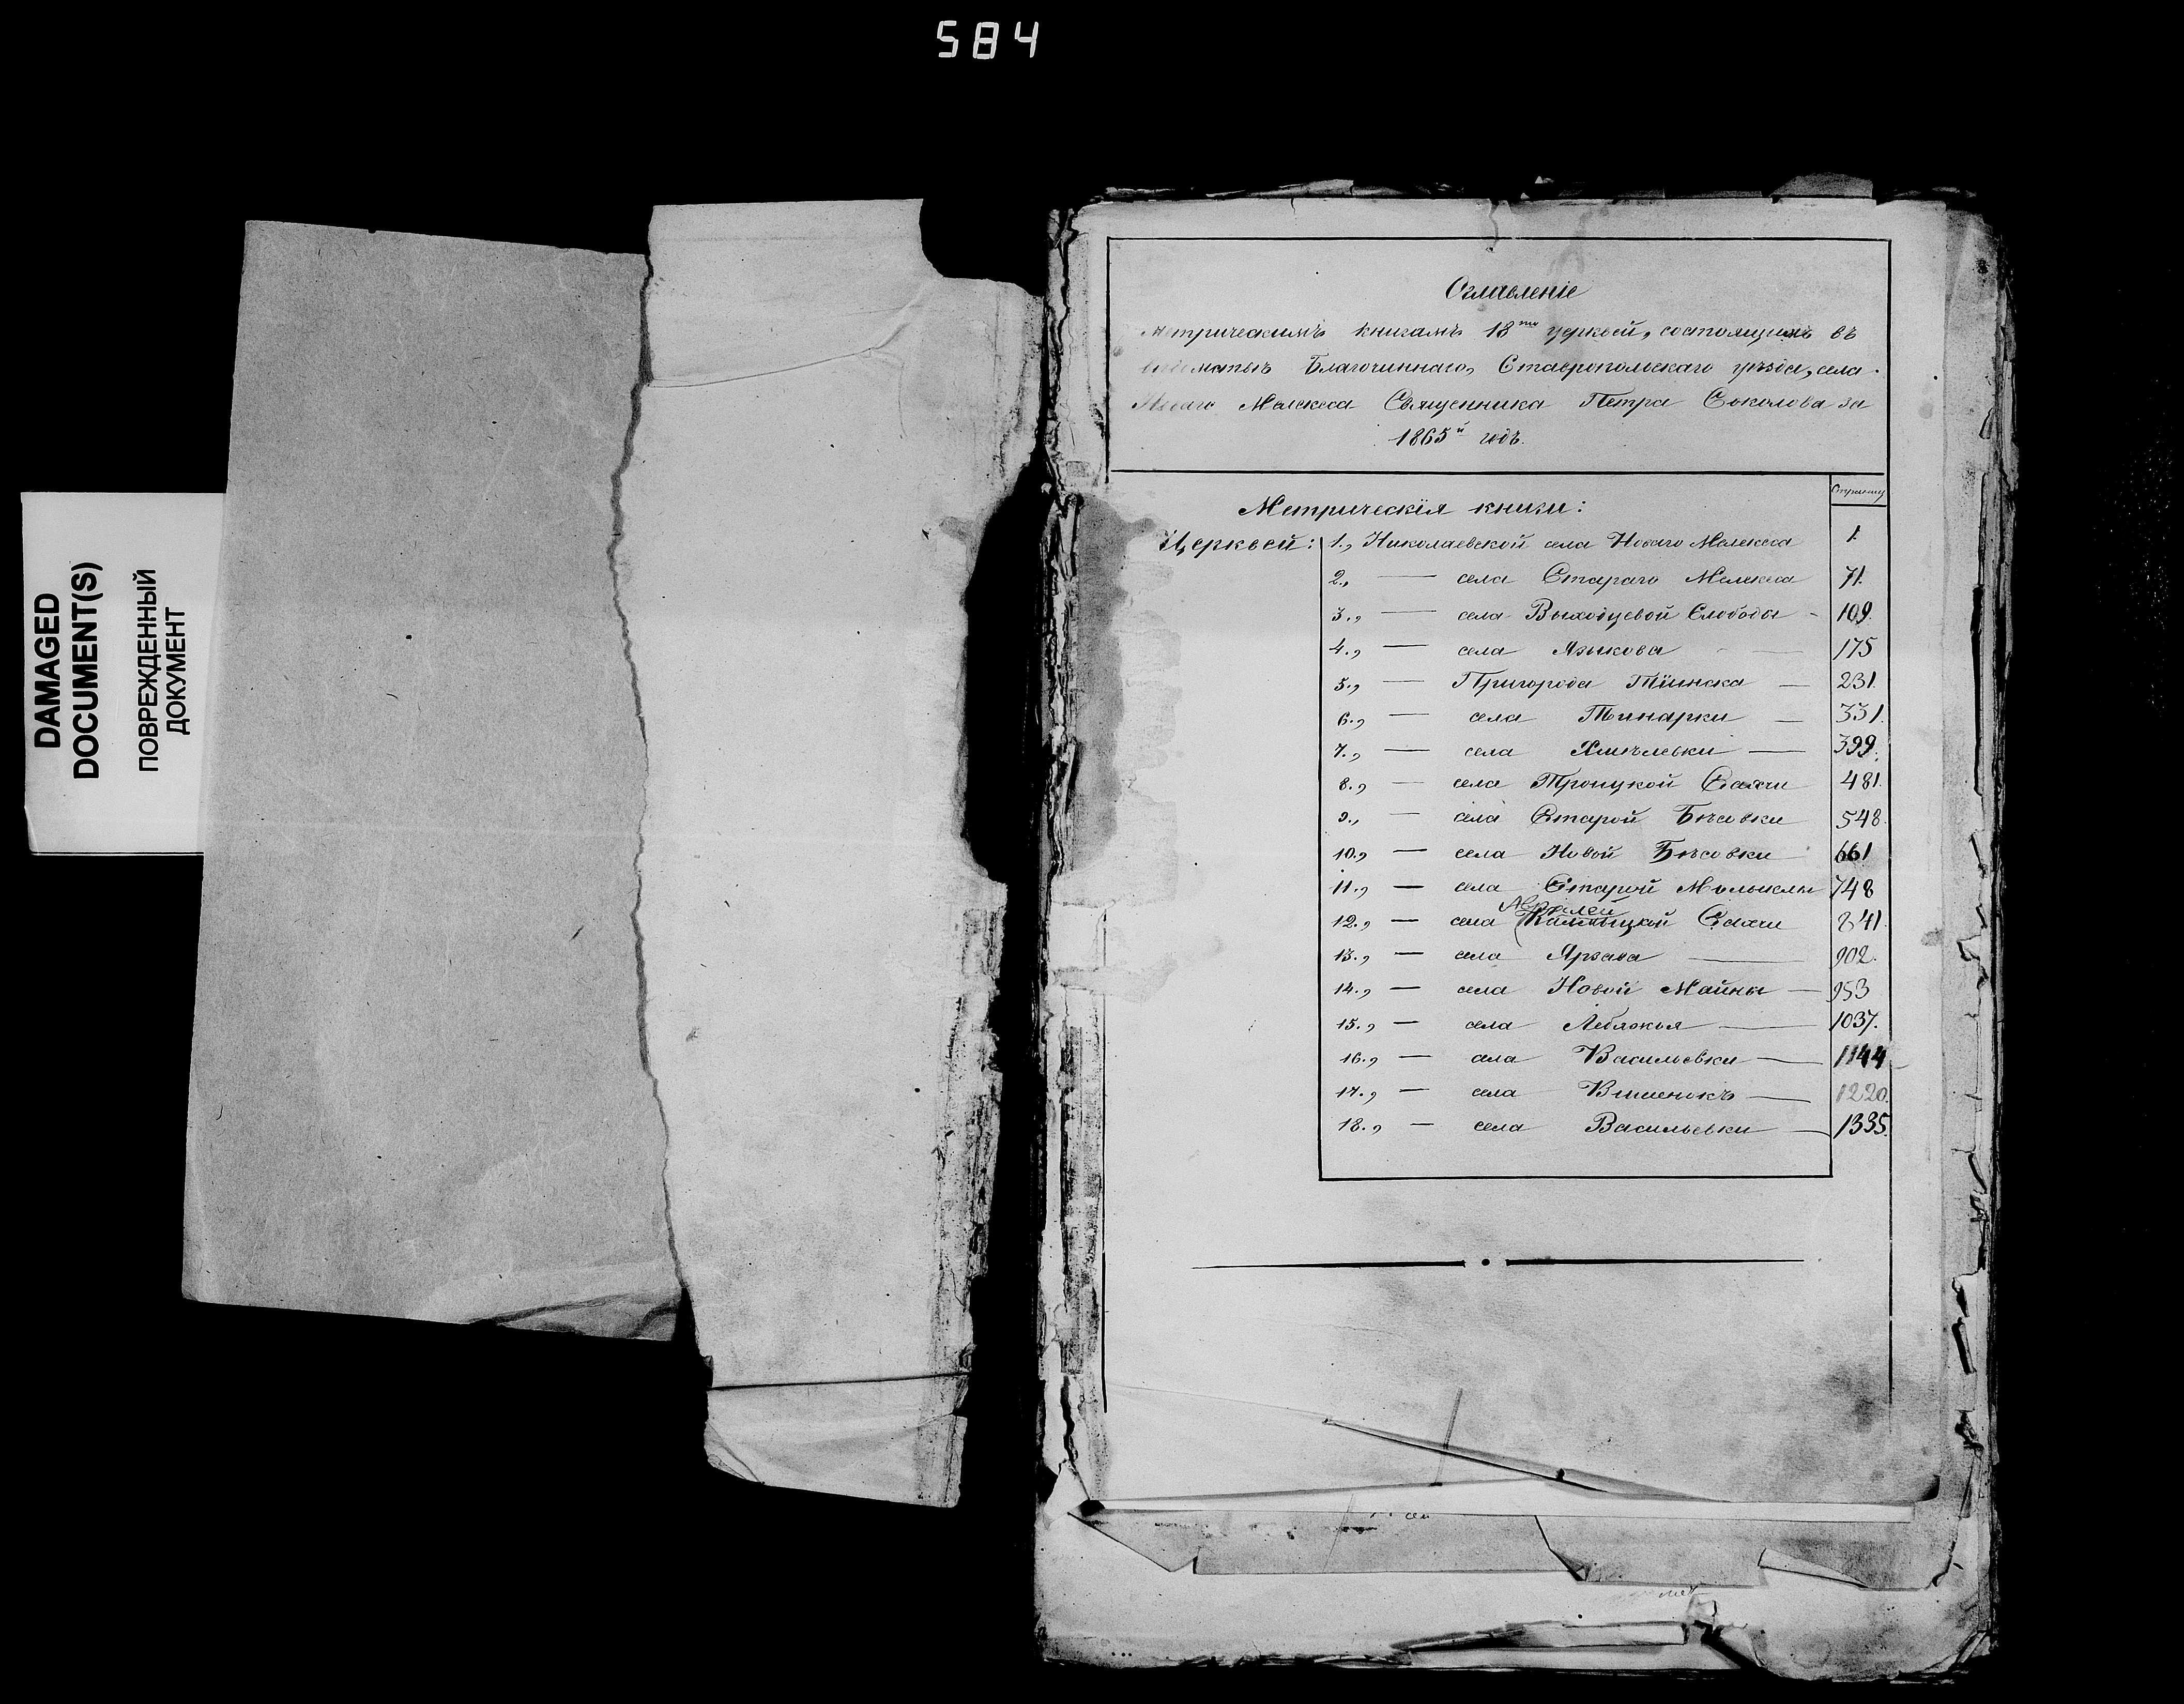 584
DAMAGED
DOCUMENT(S)
ПОВРЕЖДЕННЫЙ
ДОКУМЕНТ
Оглавленіе
метрическимъ книгамъ 18ти церквей, состоящихъ въ
вѣдомствѣ Благочиннаго, Ставропольскаго уѣзда, села
Новаго Мелекеса Священника Петра Соколова за
1865й годъ.
Страницы
Метрическія книги:
Церквей: 1., Николаевской села Новаго Мелекеса 1.
2., — села Стараго Мелекеса 71.
3., — села Выходцевой Слободы - 109.
4., — села Языкова — 175
5., — Пригорода Тіинска — 231.
6., — села Тинарки — 331.
7., — села Хмѣлевки — 399.
8., — села Троицкой Сахчи 481.
9., — села Старой Бѣсовки 548.
10., — села Новой Бѣсовки 661
11., — села Старой Малыклы 748
12., — села Калмыцкой Сахчи 841.
13., — села Ярзава — 902.
14., — села Новой Майны — 953
15., — села Лебяжья — 1037.
16., — села Васильевки — 1144
17., — села Вишенокъ — 1220.
18., — села Васильевки — 1335.